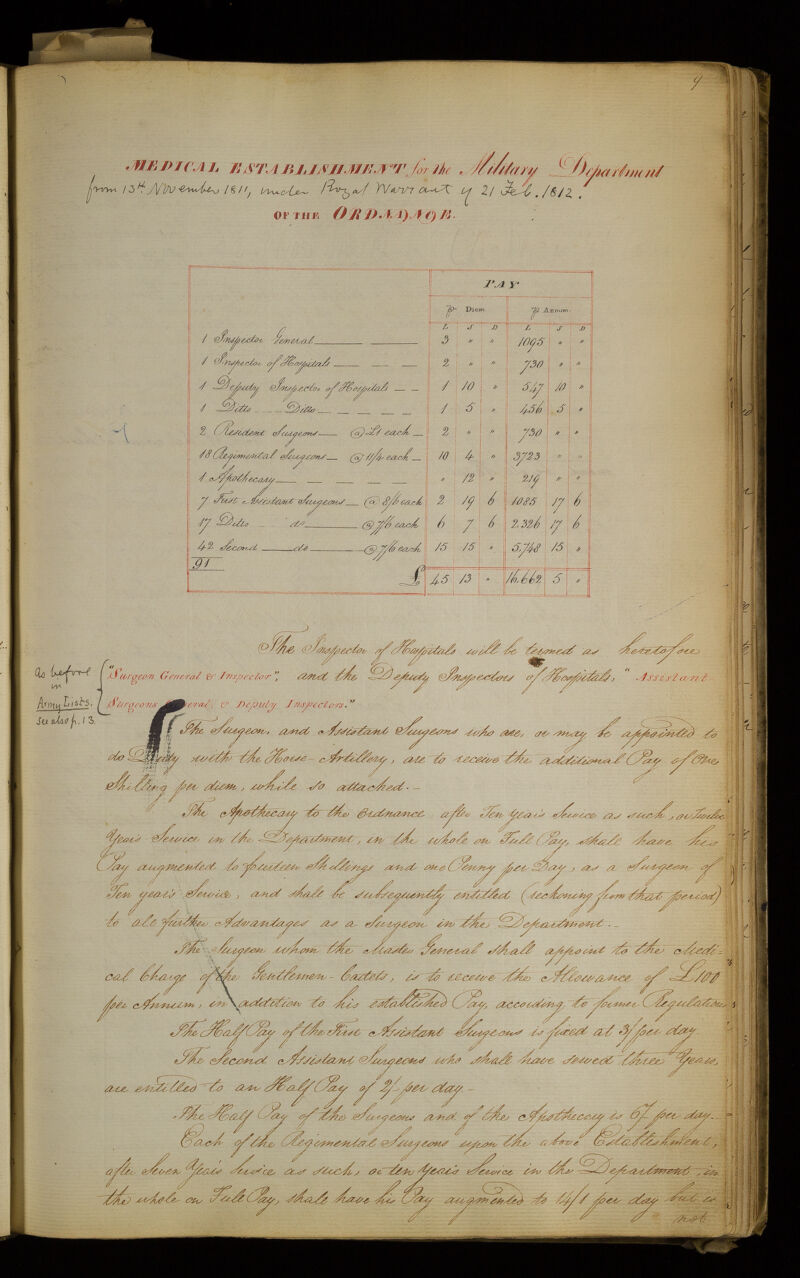 9
MEDICAL ESTABLISHMENT for the Military Department
from 13th November 1811, under Royal Warrant of 21 Feb. 1812.
OF THE ORDNANCE.
PAY
Pr Diem Pr Annum
L S D L S D
1 Inspector General 3 " " 1095 " "
1 Inspector of Hospitals 2 " " 730 " "
1 Deputy Inspector of Hospitals 1 10 " 547 10 "
1 Ditto Ditto 1 5 " 456 5 "
2 Resident Surgeons @ £1 each 2 " " 730 " "
18 Regimental Surgeons @ 11/4 each 10 4 " 3723 " "
1 Apothecary " 12 " 219 " "
7 First Assistant Surgeons @ 8/6 each 2 19 6 1085 17 6
17 Ditto do @ 7/6 each 6 7 6 2.326 17 6
42 Second do @ 7/6 each 15 15 " 5.748 15 "
91
£ 45 13 " 16.662 5 "
The Inspector of Hospitals will be termed as heretofore
"Surgeon General & Inspector", and the Deputy Inspectors of Hospitals, "Assistant
Surgeons General, & Deputy Inspectors."
as before
in
Army Lists.
see also p. 13.
The Surgeon, and Assistant Surgeons who are, or may be appointed to
do Duty with the Horse-Artillery, are to receive the additional Pay of One
Shilling per diem, while so attached.-
The Apothecary to the Ordnance after Ten years Service as such, or Twelve
Years Service in the Department, in the whole on Full Pay, shall have his
Pay augmented to fourteen Shillings and one Penny per Day, as a Surgeon of
Ten year's Service, and shall be subsequently entitled (reckoning from that period)
to all further Advantages as a Surgeon in the Department.-
The Surgeon whom the Master General shall appoint to the Medi-
cal Charge of the Gentlemen-Cadets, is to receive the Allowance of £100
per Annum, in addition to his established Pay, according to former Regulations
The Half Pay of the First Assistant Surgeons is fixed at 3/ per day
The Second Assistant Surgeons who shall have served three Years,
are entitled to an Half Pay of 2/- per day-
The Half Pay of the Surgeons and of the Apothecary is 6/ per day.-
Each of the Regimental Surgeons upon the above Establishment,
after Seven Years Service as such, or ten years Service in the Department, in
the whole on Full Pay, shall have his Pay augmented to 14/1 per day but is
not